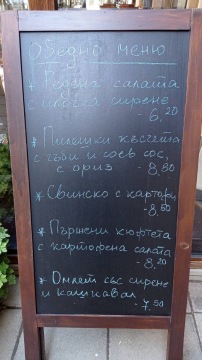 Обедно меню
* Редена салата
с млечка сирене
- 6,20
* Пилешки късчета
с гъби и соев сос,
с ориз - 8,80
* Свинско с картофи
- 8,60
* Пържени кюфтета
с картофена салата
- 8,20
* Омлет със сирене
и кашкавал
- 7,50